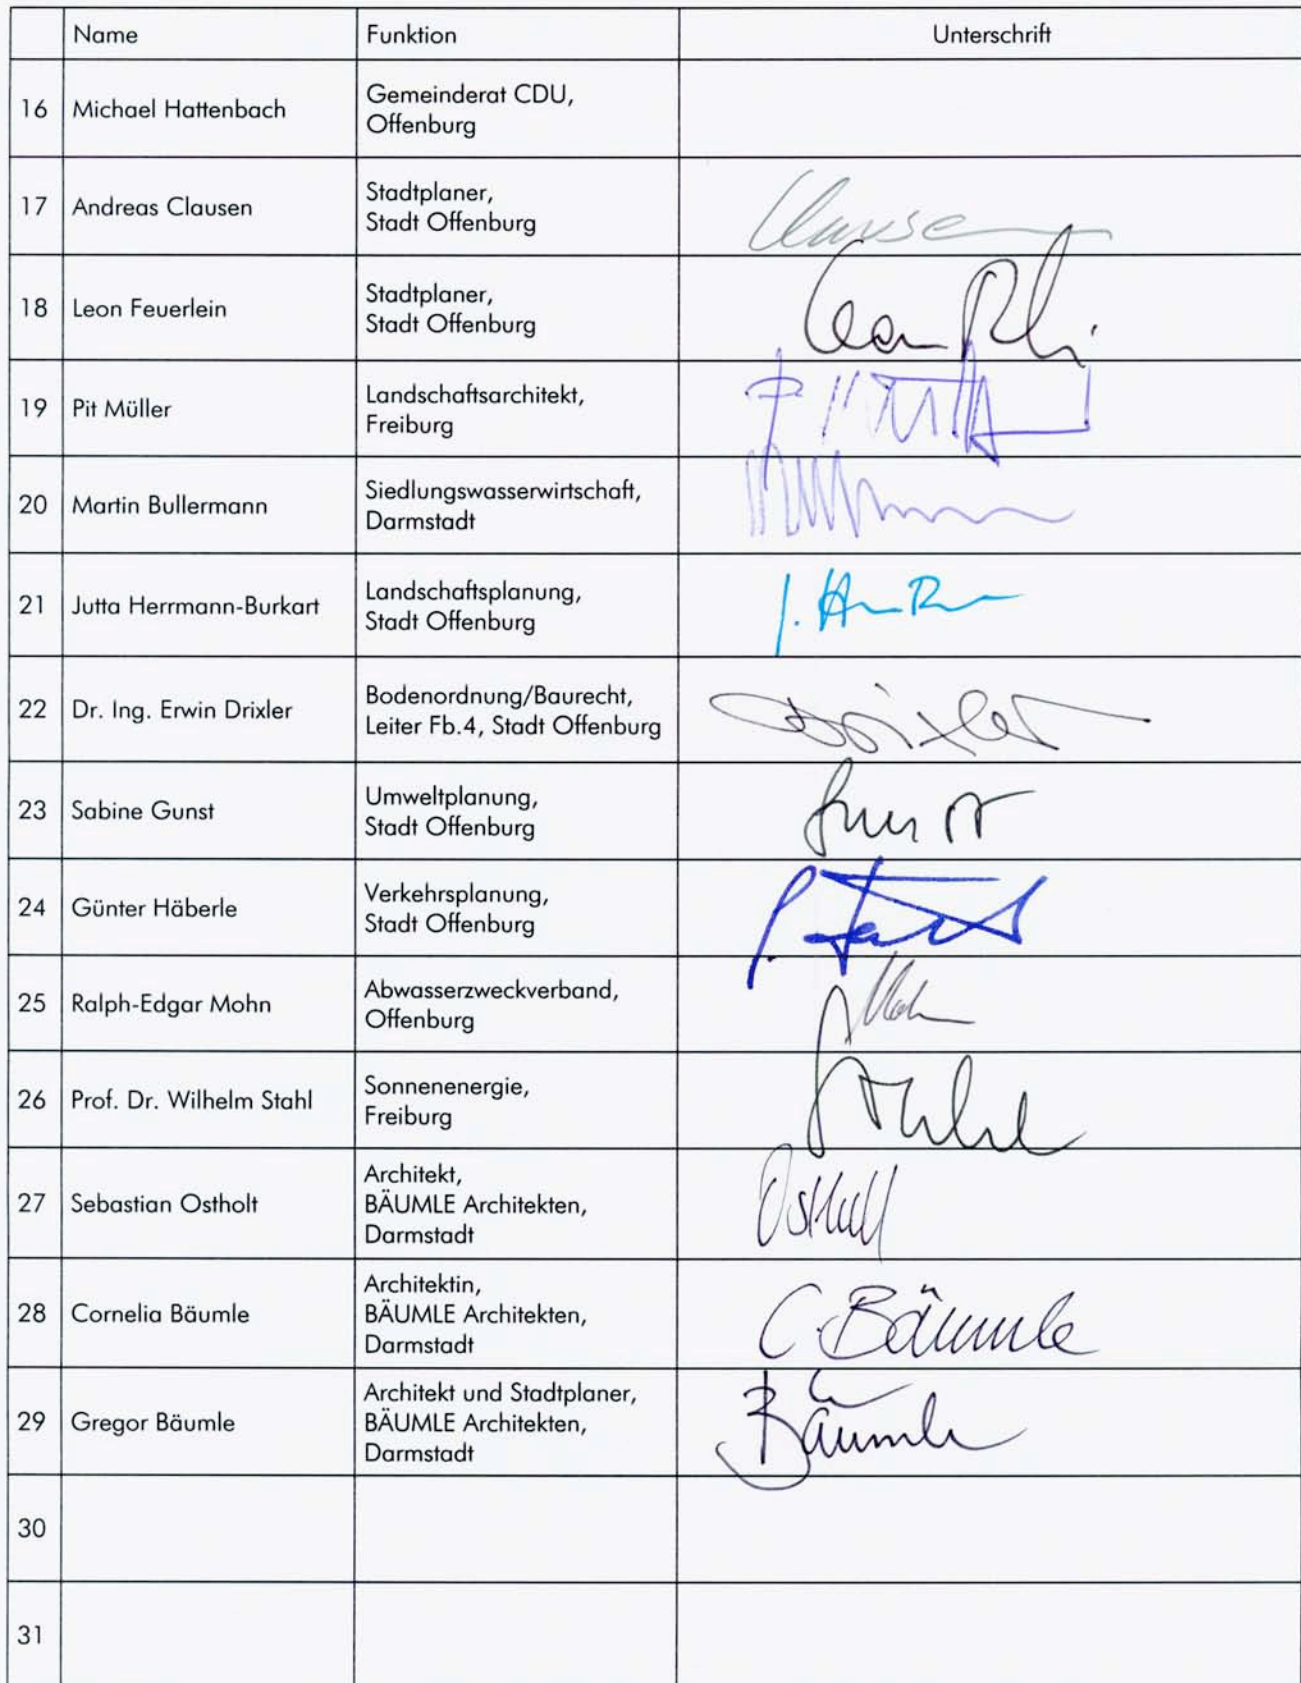 Name Funktion Unterschrift
16 Michael Hattenbach Gemeinderat CDU,
Offenburg
17 Andreas Clausen Stadtplaner,
Stadt Offenburg
Clausen
18 Leon Feuerlein Stadtplaner,
Stadt Offenburg
Leon
19 Pit Müller Landschaftsarchitekt,
Freiburg
20 Martin Bullermann Siedlungswasserwirtschaft,
Darmstadt
21 Jutta Herrmann-Burkart Landschaftsplanung,
Stadt Offenburg
22 Dr. Ing. Erwin Drixler Bodenordnung/Baurecht,
Leiter Fb.4, Stadt Offenburg
Drixler
23 Sabine Gunst Umweltplanung,
Stadt Offenburg
Gunst
24 Günter Häberle Verkehrsplanung,
Stadt Offenburg
25 Ralph-Edgar Mohn Abwasserzweckverband,
Offenburg
Mohn
26 Prof. Dr. Wilhelm Stahl Sonnenenergie,
Freiburg
Stahl
27 Sebastian Ostholt Architekt,
BÄUMLE Architekten,
Darmstadt
Ostholt
28 Cornelia Bäumle Architektin,
BÄUMLE Architekten,
Darmstadt
C. Bäumle
29 Gregor Bäumle Architekt und Stadtplaner,
BÄUMLE Architekten,
Darmstadt
Bäumle
30
31